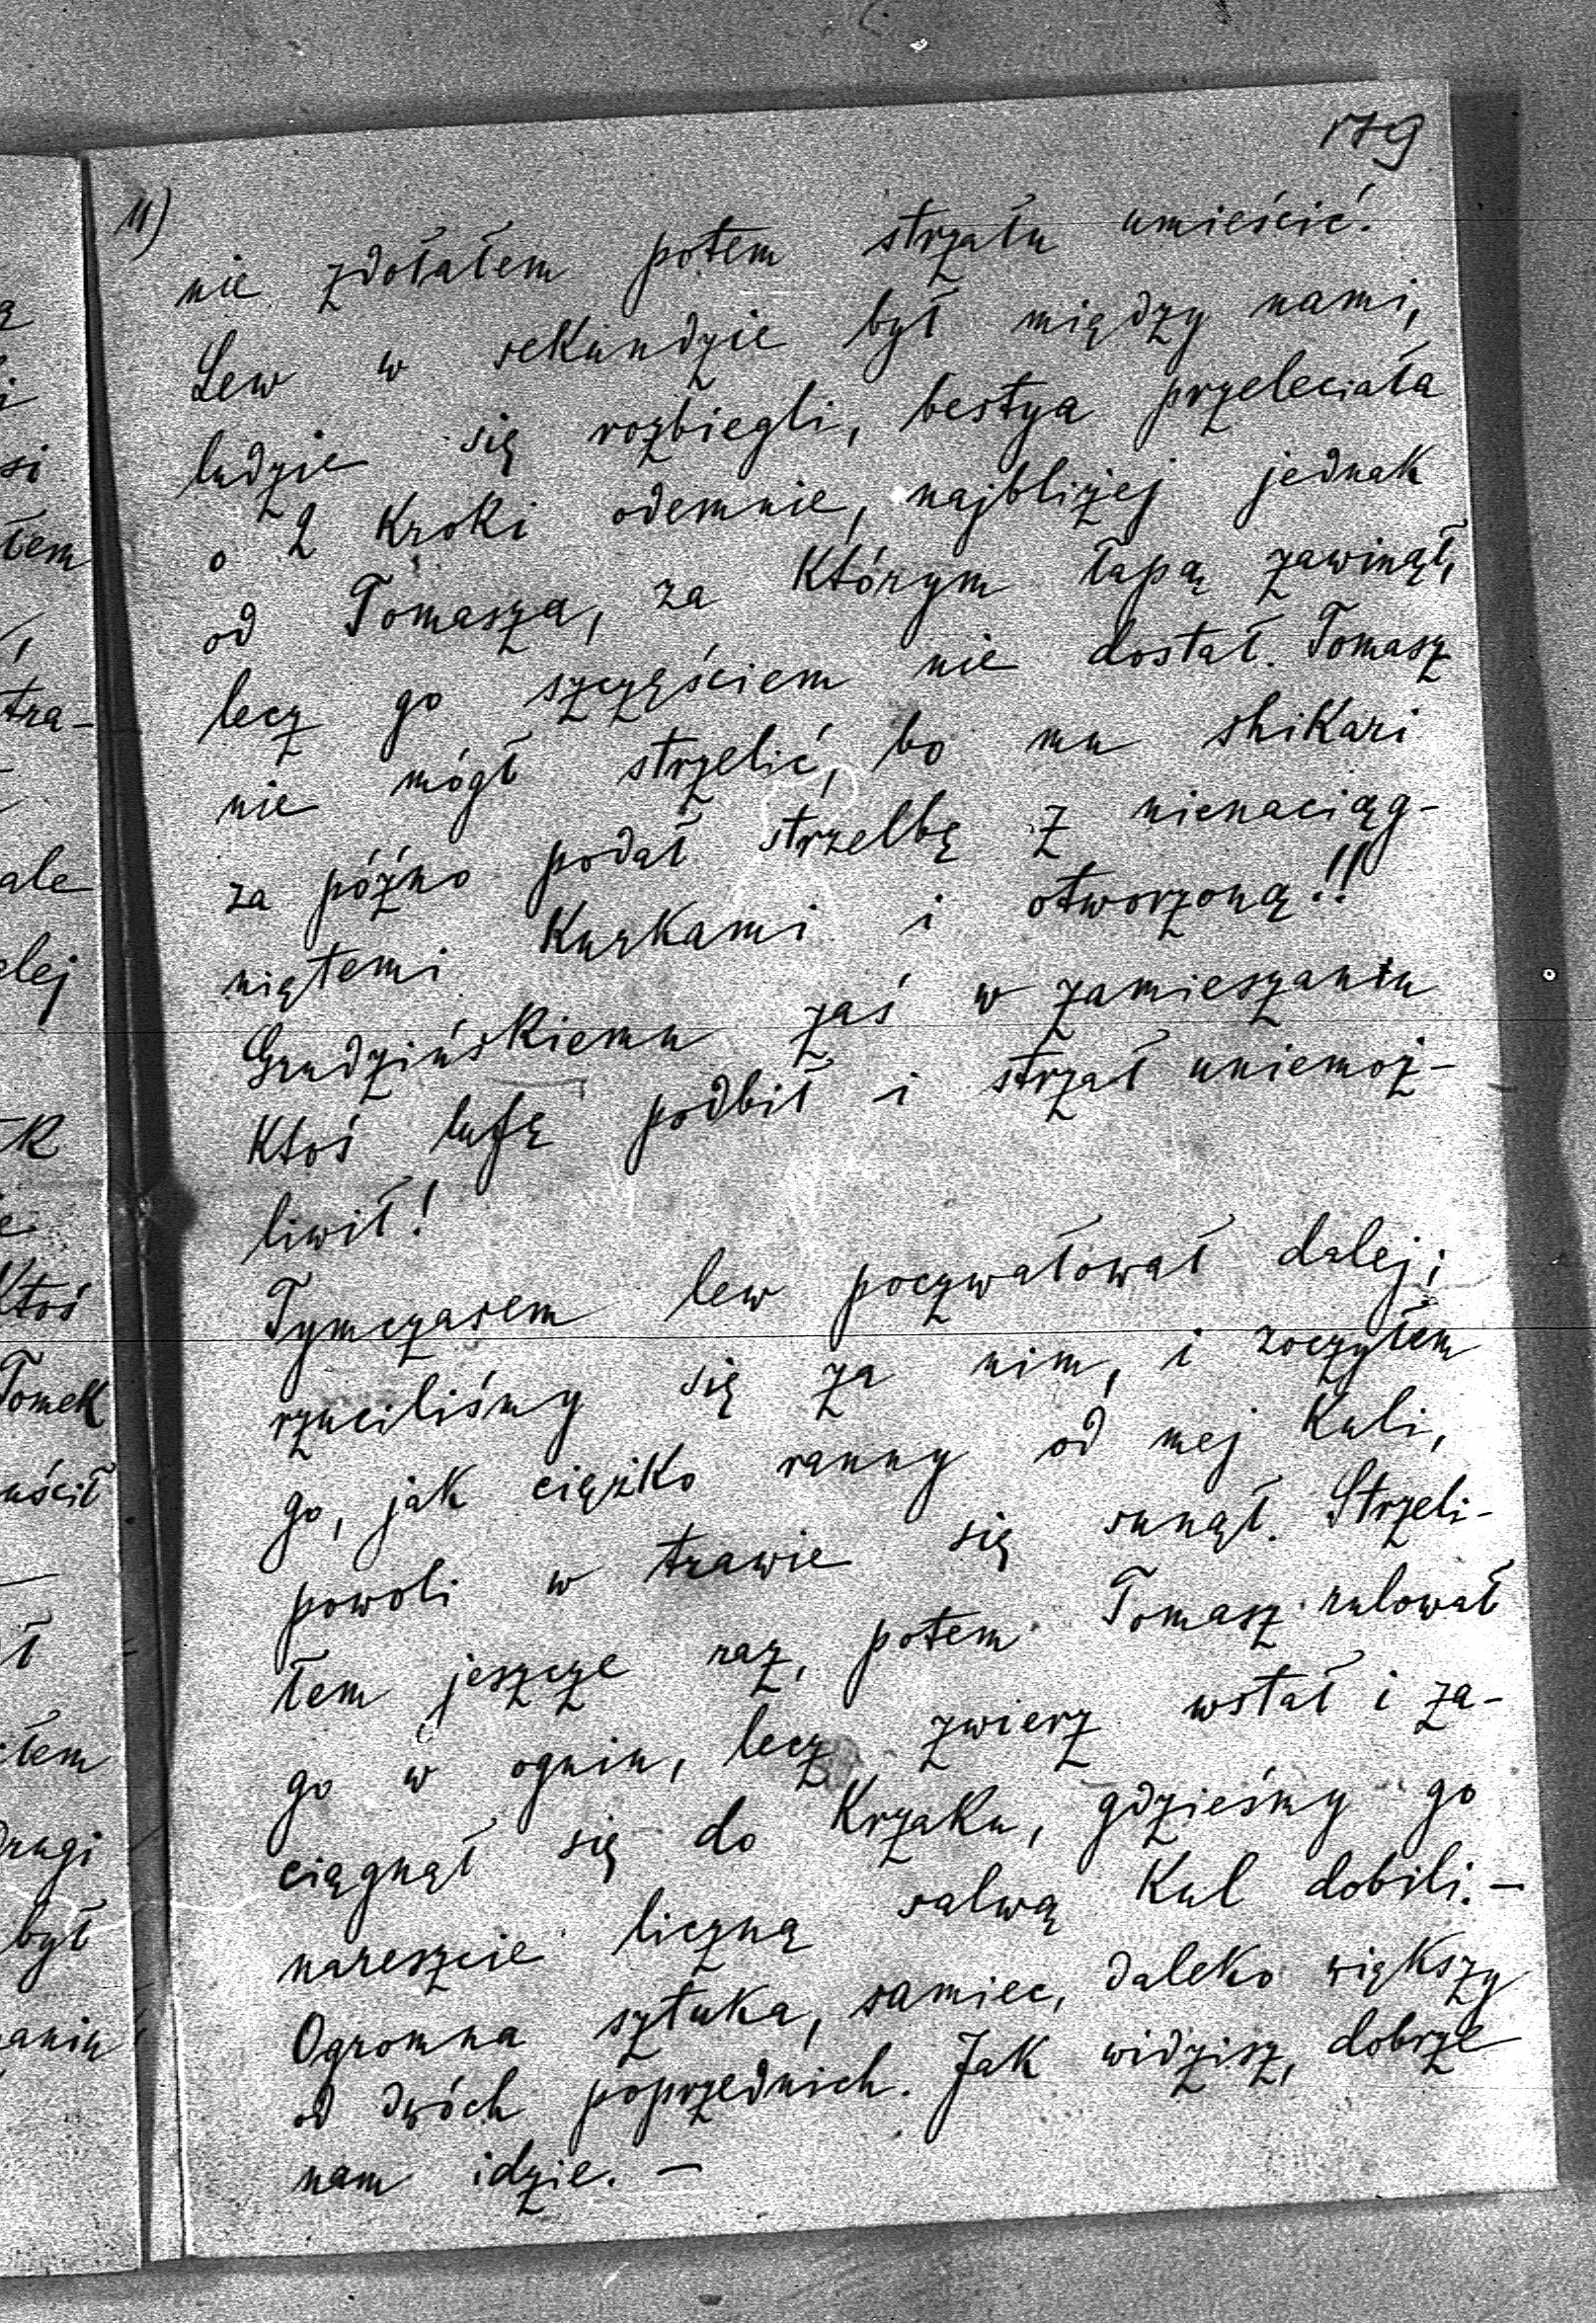 179
11)
nie zdołałem potem strzału umieścić.
Lew w sekundzie był między nami,
ludzie się rozbiegli, bestya przeleciała
o 2 kroki odemnie, najbliżej jednak
od Tomasza, za którym łapą zawinął,
lecz go szczęściem nie dostał. Tomasz
nie mógł strzelić, bo mu shikari
za późno podał strzelbę z nienaciąg-
niętemi kurkami i otworzoną!!
Grudzińskiemu zaś w zamieszaniu
ktoś lufę podbił i strzał uniemoż-
liwił!
Tymczasem lew poczwałował dalej;
rzuciliśmy się za nim, i zoczyłem
go, jak ciężko ranny od mej kuli,
powoli w trawie się sunął. Strzeli-
łem jeszcze raz, potem Tomasz rulował
go w ogniu, lecz zwierz wstał i za-
ciągnął się do krzaku, gdzieśmy go
nareszcie liczną salwą kul dobili. —
Ogromna sztuka, samiec, daleko większy
od dwóch poprzednich. Jak widzisz, dobrze
nam idzie. —
łem
tra-
ale
Ktoś
Tomek
był